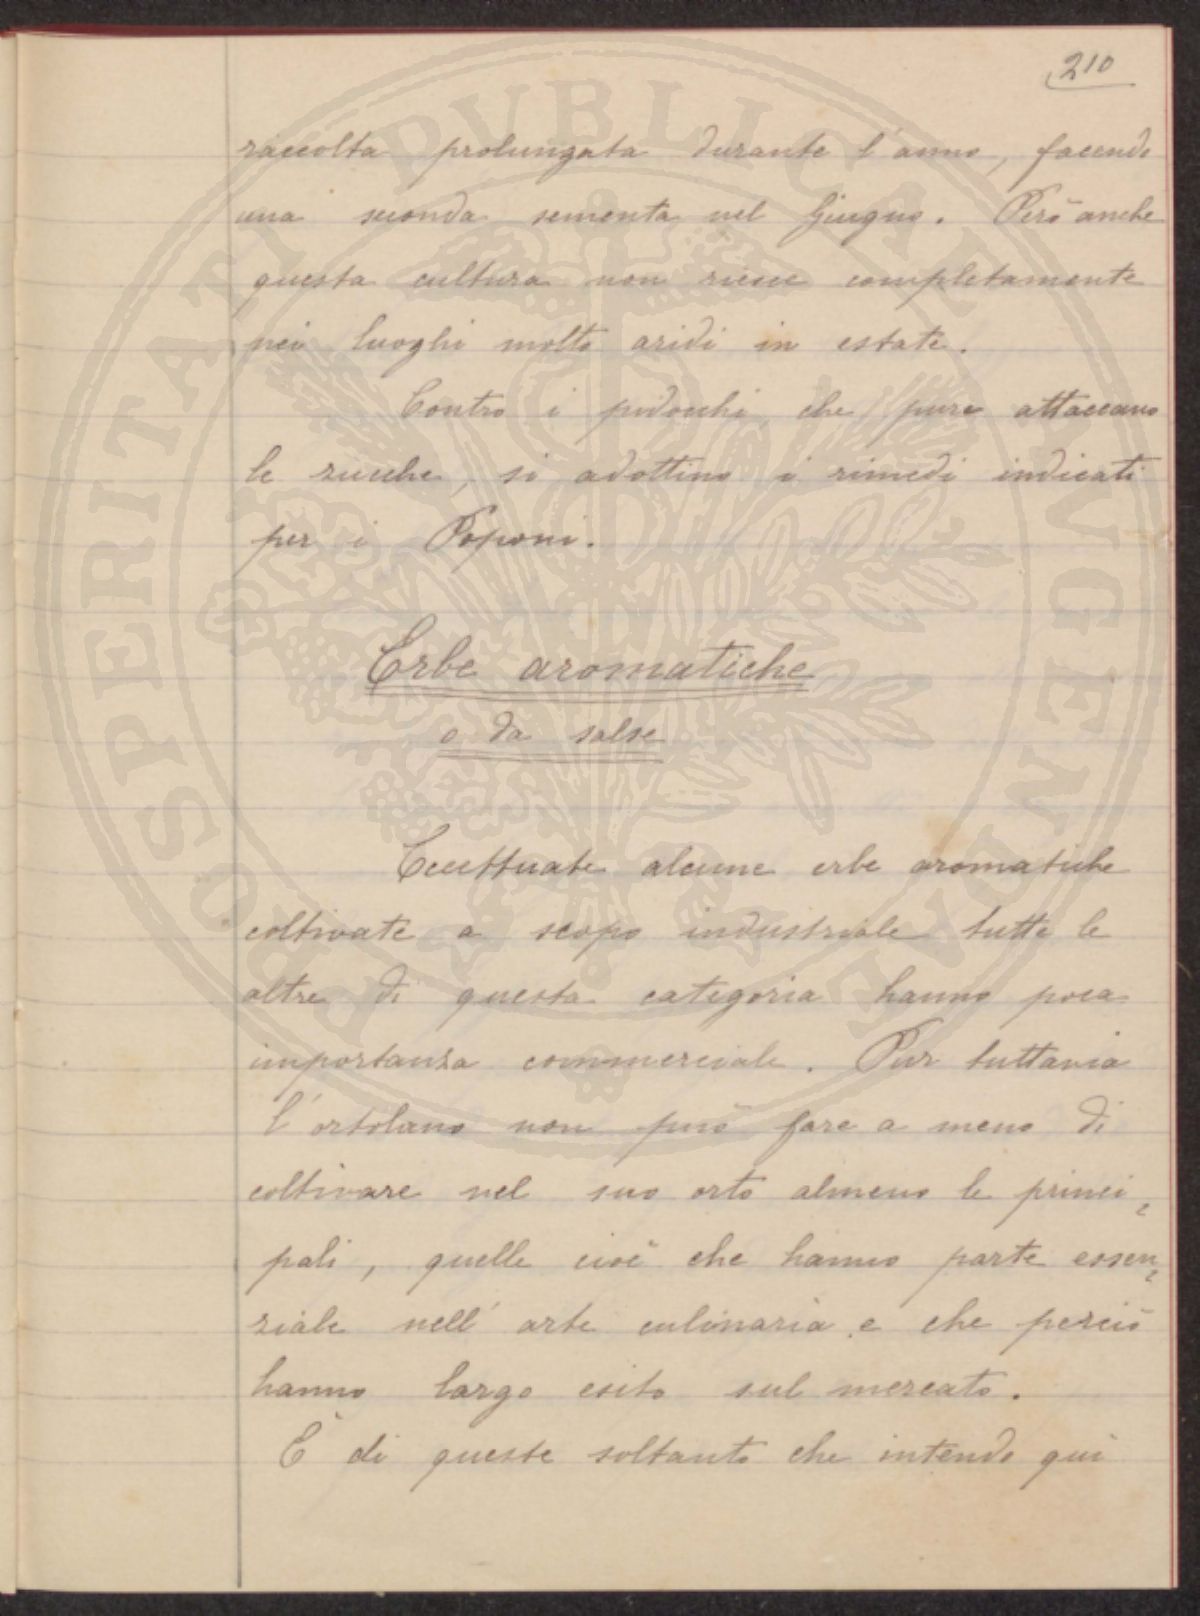 210
raccolta prolungata durante l'anno, facendo
una seconda sementa nel Giugno. Però anche
questa cultura non riesce completamente
nei luoghi molto aridi in estate.
Contro i pidocchi, che pure attaccano
le zucche, si adottino i rimedi indicati
per i Poponi.
Erbe aromatiche
o da salse
Eccettuate alcune erbe aromatiche
coltivate a scopo industriale tutte le
altre di questa categoria hanno poca
importanza commerciale. Pur tuttavia
l'ortolano non può fare a meno di
coltivare nel suo orto almeno le princi=
pali, quelle cioè che hanno parte essen=
ziale nell'arte culinaria e che perciò
hanno largo esito sul mercato.
È di queste soltanto che intendo qui
PROSPERITATI PUBLICAE AUGENDAE